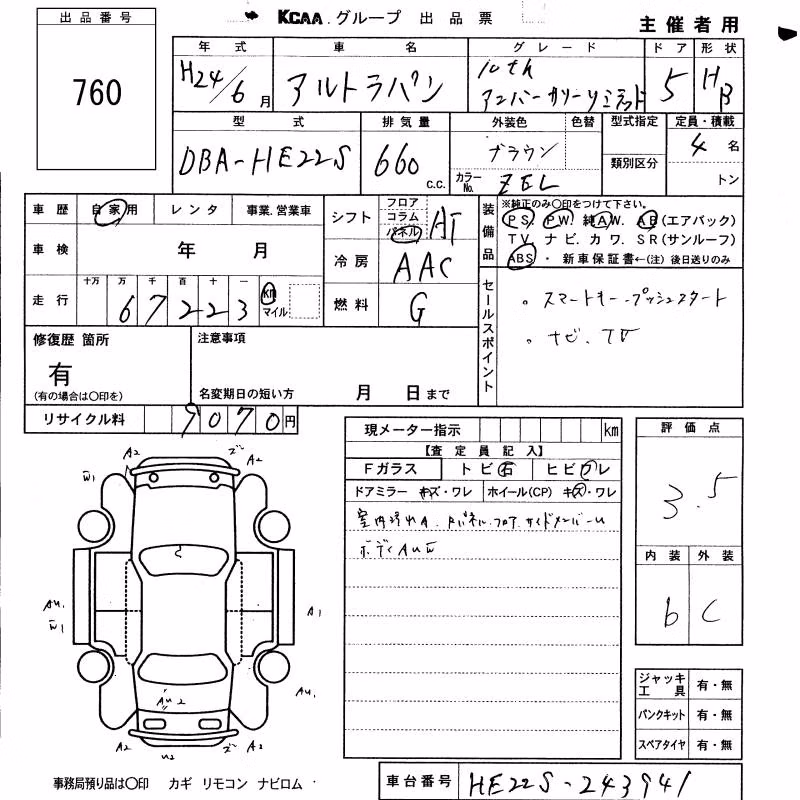 出品番号
KCAA グループ 出品票
主催者用
760
年式 車名 グレード ドア 形状
H24/6月 アルトラパン 10th アンバーカラーリミテッド 5 HB
型式 排気量 外装色 色替 型式指定 定員・積載
DBA-HE22S 660 C.C. ブラウン 類別区分 4名
カラーNo. ZEL トン
車歴 自家用 レンタ 事業.営業車
シフト フロア コラム パネル AT
装備品 ※純正のみ〇印をつけて下さい。
PS. PW. 純AW. AB(エアバック)
TV. ナビ. カワ. SR(サンルーフ)
ABS ・ 新車保証書←(注) 後日送りのみ
車検 年 月
冷房 AAC
走行 十万 万 千 百 十 一
67223 km マイル
燃料 G
セールスポイント
。スマートキー.プッシュスタート
。ナビ、TV
修復歴 箇所
有
(有の場合は〇印を)
注意事項
名変期日の短い方 月 日まで
リサイクル料 9070円
現メーター指示 km
【査定員記入】
Fガラス トビ石 ヒビワレ
ドアミラー キズ・ワレ ホイール(CP) キズ・ワレ
評価点
3.5
内装 外装
b C
A2 ズ A2
W1
AU1 W1 A1
AU1
AU2
A2 U2 ズ A2
ジャッキ工具 有・無
パンクキット 有・無
スペアタイヤ 有・無
事務局預り品は〇印 カギ リモコン ナビロム
車台番号 HE22S-243941